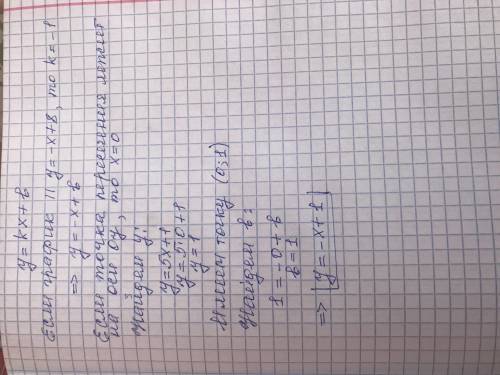 y=kx+b
Если график || y=-x+8, то k=-1
=> y=x+b
Если точка пересечения лежит
на оси Oy, то x=0
Найдём y:
y=5x+1
y=5·0+1
y=1
Имеем точку (0;1)
Найдем b:
1=-0+b
b=1
=> y=-x+1